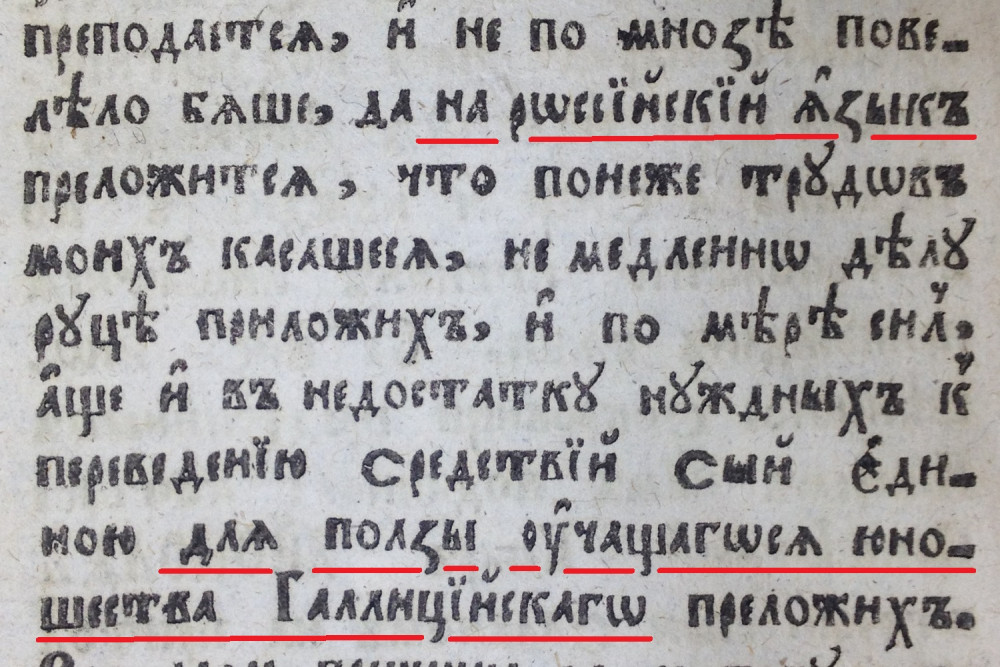 преподаетсѧ, и҆ не по мноѕѣ пове-
лѣло бѧше, да на рѡссїйскїй ѧ҆ꙁыкъ
преложитсѧ, что понеже трꙋдѡвъ
моихъ касашесѧ, не медленнѡ дѣлꙋ
рꙋцѣ приложихъ, и҆ по мѣрѣ сил̾,
а҆ще и҆ въ недостаткꙋ нꙋждныхъ к̾
переведенїю Средствїй Сый є҆ди-
ною длѧ полꙁы ᲂу҆чащагѡсѧ юно-
шества Галлицїйскагѡ преложихъ.